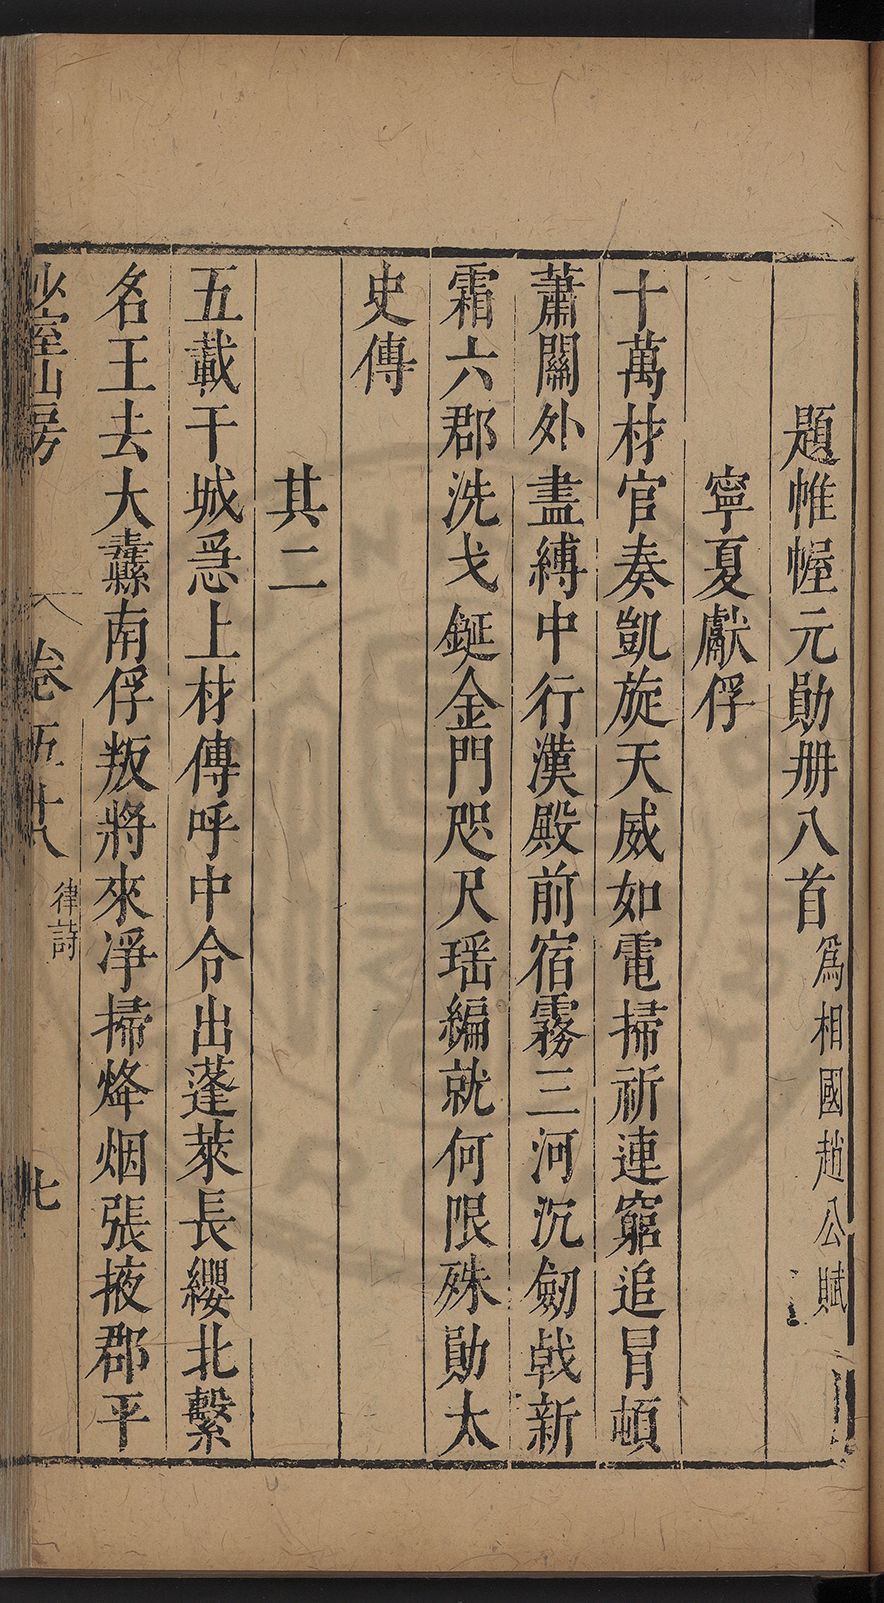 題帷幄元勛册八首為相國趙公賦
寧夏獻俘
十萬材官奏凱旋天威如電掃祈連窮追冒頓
蕭關外盡縛中行漢殿前宿霧三河沉劒戟新
霜六郡洗戈鋋金門咫尺瑶編就何限殊勛太
史傳
其二
五載干城急上材傳呼中令出蓬萊長纓北繫
名王去大纛南俘叛將來凈掃烽烟張掖郡平
少室山房
卷五十八
律詩
七